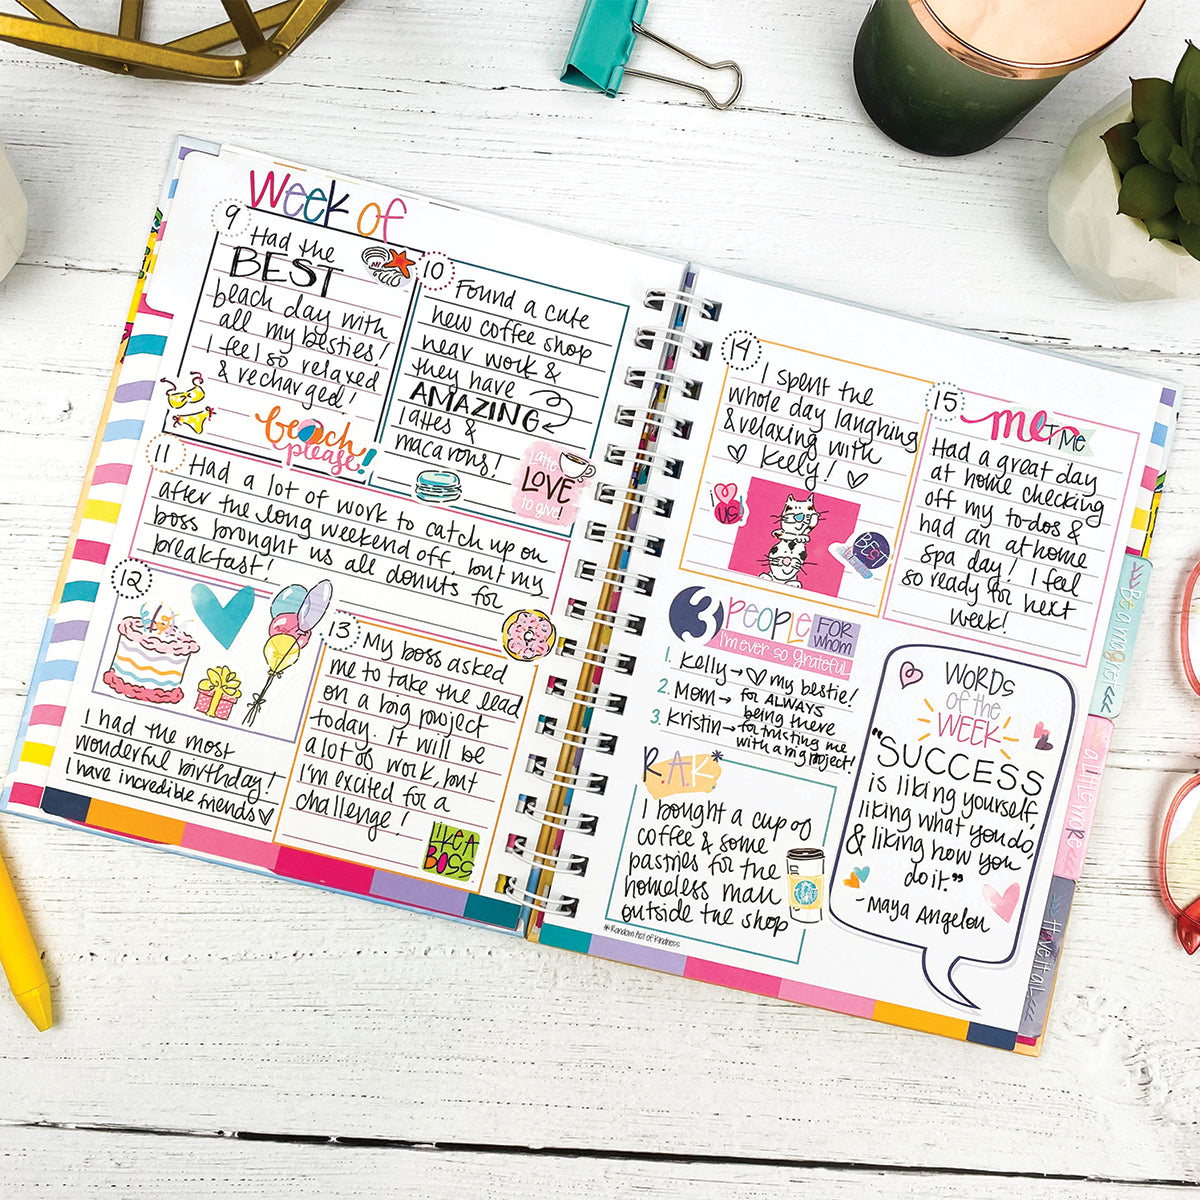 Week of
9
Had the
BEST
beach day with
all my besties!
I feel so relaxed
& recharged!
beach
please!
10
Found a cute
new coffee shop
near work &
they have
AMAZING
lattes &
macarons!
latte
LOVE
to give!
11
Had a lot of work to catch up on
after the long weekend off, but my
boss brought us all donuts for
breakfast!
12
I had the most
wonderful birthday!
I have incredible friends
13
My boss asked
me to take the lead
on a big project
today. It will be
a lot of work, but
I'm excited for a
challenge!
LIKE A
BOSS
14
I spent the
whole day laughing
& relaxing with
Kelly!
US!
BEST
15
me TIME
Had a great day
at home checking
off my to-dos &
had an at home
spa day! I feel
so ready for next
week!
3 PEOPLE FOR WHOM
I'm ever so grateful
1. Kelly → my bestie!
2. Mom → for ALWAYS
being there
3. Kristin → for trusting me
with a big project!
R.A.K*
I bought a cup of
coffee & some
pastries for the
homeless man
outside the shop
*Random Act of Kindness
WORDS
of the
WEEK
"SUCCESS
is liking yourself,
liking what you do,
& liking how you
do it."
- Maya Angelou
a little more <<<
>>> Have it all <<<